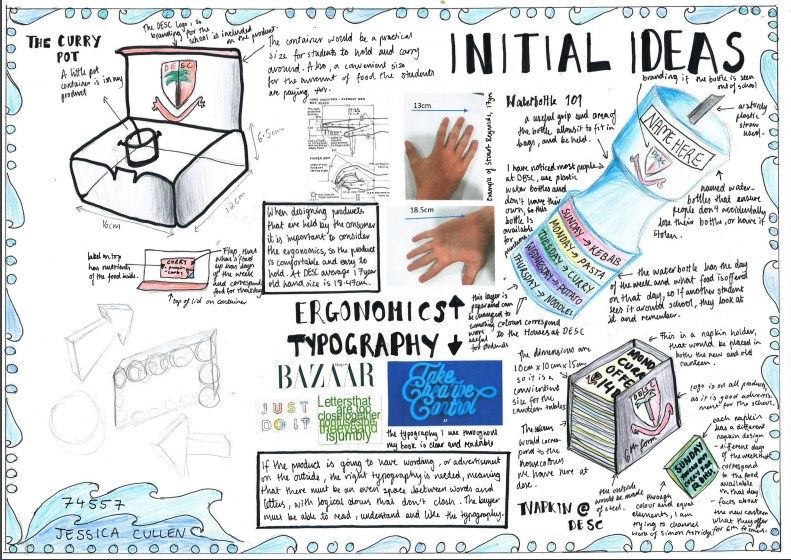 THE CURRY
POT
A little pot
container is in my
product
The DESC Logo, so
branding for the
school is included
on the product.
The container would be a practical
size for students to hold and carry
around. Also, a convenient size
for the amount of food the students
are paying for.
DESC
6.5cm
12cm
16cm
INITIAL IDEAS
branding if the bottle is seen
out of school
HAND POSITIONS - AVERAGE MAN
13cm
18.5cm
Example of Stuart Regends, 17yrs
Waterbottle 101
a useful grip and area of
the bottle, allows it to fit in
bags, and be held.
I have noticed most people
at DESC, use plastic
water bottles and
don't have their
own, so this
bottle is
available for
NAME HERE
DESC
plastic
straw
used.
named water-
bottles that ensure
people don't accidentally
lose their bottles, or have it
stolen.
SUNDAY → KEBAB
MONDAY → PASTA
TUESDAY → CURRY
WEDNESDAY → POTATO
THURSDAY → NOODLES
the waterbottle has the day
of the week and what food is offered
on that day, so if another student
sees it around school, they look at
it and remember.
When designing products
that are held by the consumer
it is important to consider
the ergonomics, so the product
is comfortable and easy to
hold. At DESC average 17 year
old hand size is 18.47cm.
label on top
has nutrients
of the food inside.
CURRY
Flap that
when closed
up has days
of the week
and correspond
top of lid on container
this layer is
paper and can
be changed to
something
more
useful
for students
colours correspond
to the Houses at DESC
ERGONOMICS ↑
TYPOGRAPHY ↓
BAZAAR
JUST
DO IT
Letters that
are too
close together
confuses the
eye and
is jumbly
Take
Control
the typography I use throughout
my book is clear and readable
The dimensions are
10cm x 10cm x 15cm
so it is a
convienient
size for the
canteen tables
The colours
would corres-
pond to the
house colours
we have here at
desc.
This is a napkin holder,
that would be placed in
both the new and old
canteen.
logo is on all products
as it is good advertis-
ment for the school.
DESC
6th form
the outside
would be made
of steel.
each napkin
has a different
napkin design
- different days
of the week that
correspond
to the food
available
on that day
- facts about
the new canteen
what they offer
for 6th formers.
SUNDAY
through
colour and equal
elements, I am
trying to channel
work of Simon Astridge
NAPKIN @
DESC
If the product is going to have wording, or advertisement
on the outside, the right typography is needed, meaning
that there must be an even space between words and
letters, with logical colours that don't clash. The buyer
must be able to read, understand and like the typography.
74557
JESSICA CULLEN